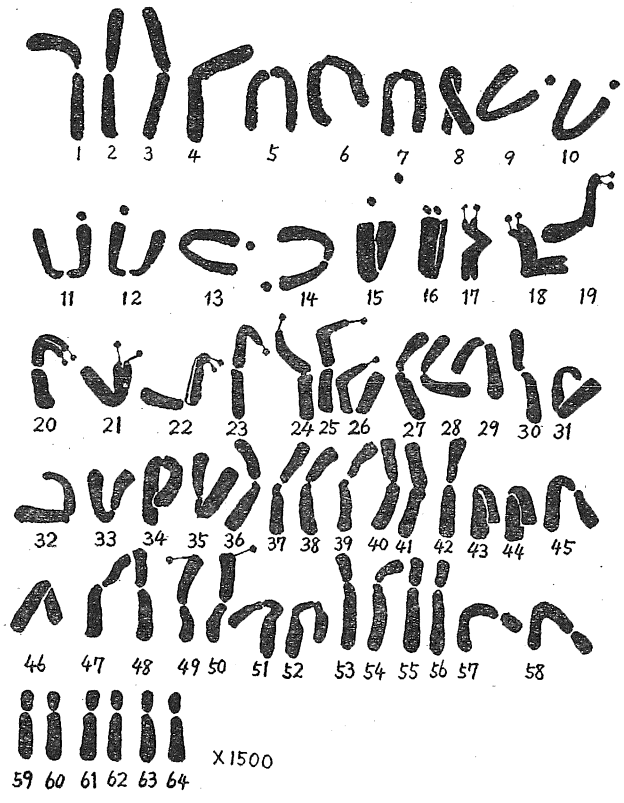 1 2 3 4 5 6 7 8 9 10
11 12 13 14 15 16 17 18 19
20 21 22 23 24 25 26 27 28 29 30 31
32 33 34 35 36 37 38 39 40 41 42 43 44 45
46 47 48 49 50 51 52 53 54 55 56 57 58
59 60 61 62 63 64 X1500